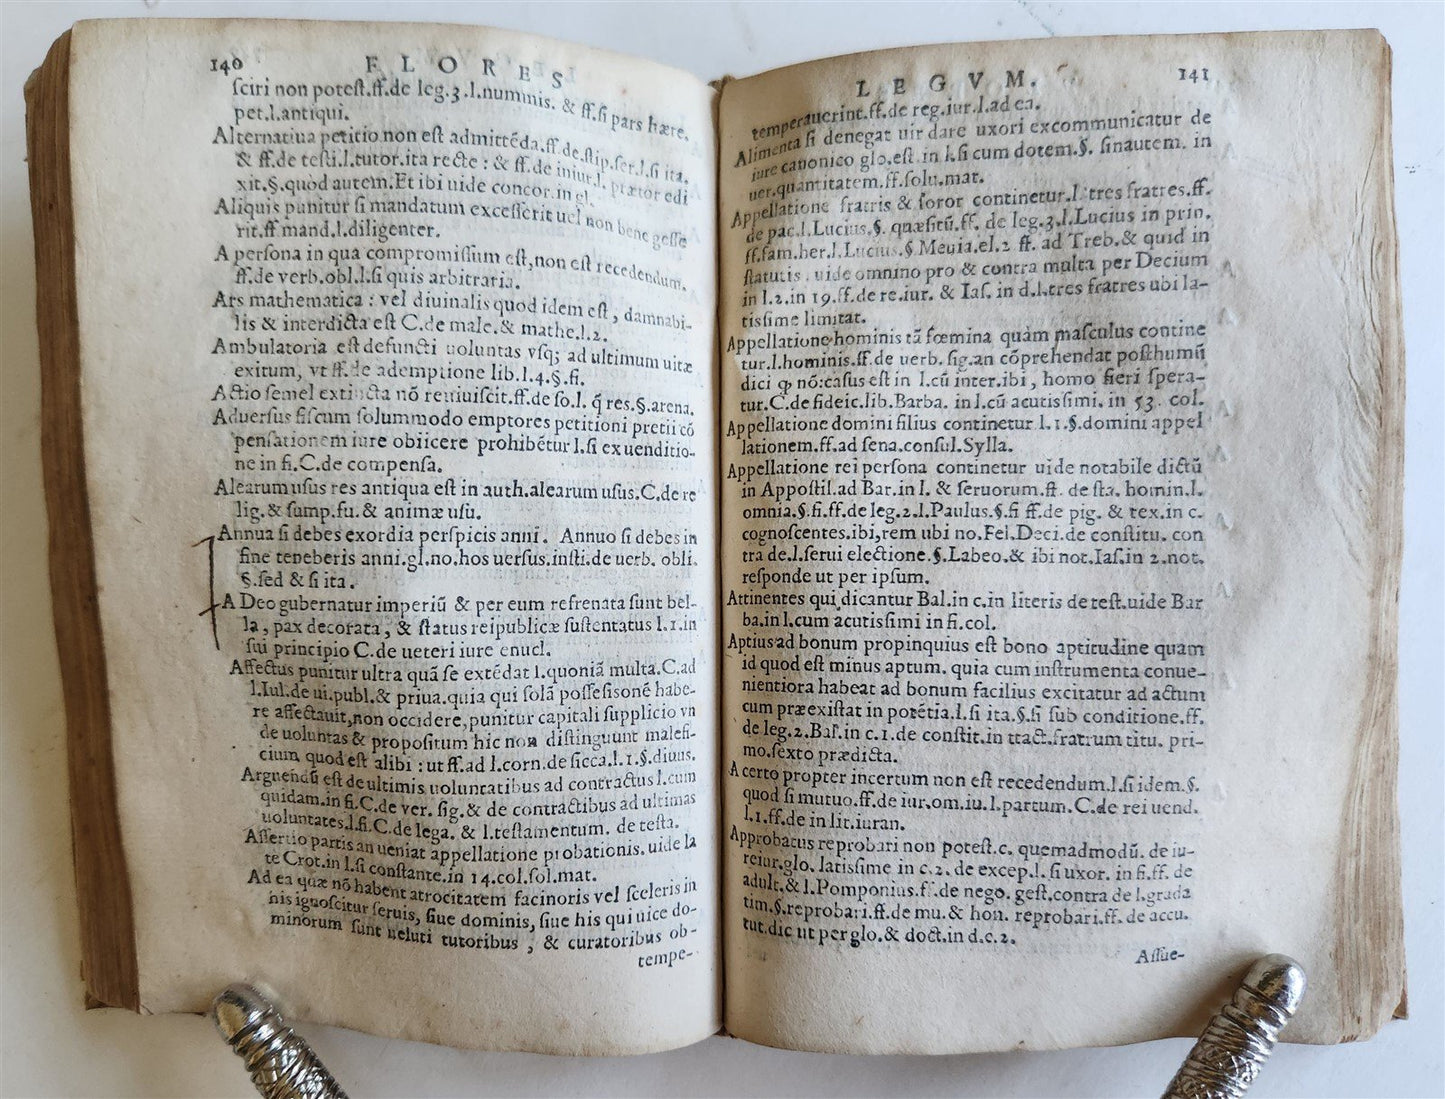 140 FLORES
sciri non potest.ff.de leg.3.l.nummis. & ff.si pars hære.
pet.l.antiqui.
Alternatiua petitio non est admittẽda.ff.de stip.ser.l.si ita.
& ff.de testi.l.tutor.ita recte : & ff.de iniur.l. prætor edi
xit.§.quod autem.Et ibi uide concor.in gl.
Aliquis punitur si mandatum excesserit uel non bene gesse
rit.ff mand.l.diligenter.
A persona in qua compromissium est,non est recedendum.
ff.de verb.obl.l.si quis arbitraria.
Ars mathematica : vel diuinalis quod idem est , damnabi-
lis & interdicta est C.de male.& mathe.l.2.
Ambulatoria est defuncti uoluntas vsq; ad ultimum uitæ
exitum, vt ff.de ademptione lib.l.4.§.fi.
Actio semel extincta nõ reuiuiscit.ff.de so.l. q̃ res.§.arena.
Aduersus fiscum solummodo emptores petitioni pretii cõ
pensationem iure obiicere prohibẽtur l.si ex uenditio-
ne in fi.C.de compensa.
Alearum usus res antiqua est in auth.alearum usus.C.de re
lig.& sump.fu.& animæ usu.
Annua si debes exordia perspicis anni. Annuo si debes in
fine teneberis anni.gl.no.hos uersus.insti.de uerb. obli.
§.sed & si ita.
A Deo gubernatur imperiũ & per eum refrenata sunt bel-
la, pax decorata, & status reipublicæ sustentatus l.1.in
sui principio C.de ueteri iure enucl.
Affectus punitur ultra quã se extẽdat l.quoniã multa.C.ad
l.Iul.de ui.publ.& priua.quia qui solã possesisonẽ habe-
re affectauit,non occidere,punitur capitali supplicio vn
de uoluntas & propositum hic non distinguunt malefi-
cium quod est alibi : ut ff.ad l.corn.de sicca.l.1.§.diuus.
Arguendũ est de ultimis uoluntatibus ad contractus l.cum
quidam.in fi.C.de ver. sig.& de contractibus ad ultimas
uoluntates.l.fi.C.de lega. & l.testamentum. de testa.
Assertio partis an ueniat appellatione probationis. uide la
te Crot.in l.si constante.in 14.col.sol.mat.
Ad ea quæ nõ habent atrocitatem facinoris vel sceleris in
his ignoscitur seruis, siue dominis, siue his qui uice do-
minorum sunt ueluti tutoribus , & curatoribus ob-
tempe-
LEGVM. 141
temperauerint.ff.de reg.iur.l.ad ea.
Alimenta si denegat uir dare uxori excommunicatur de
iure canonico glo.est in l.si cum dotem.§. sinautem. in
uer.quantitatem.ff.solu.mat.
Appellatione fratris & soror continetur.l.tres fratres.ff.
de pac.l.Lucius.§. quæsitũ.ff. de leg.3.l.Lucius in prin.
ff.fam.her.l.Lucius.§ Meuia.el.2 ff. ad Treb.& quid in
statutis . uide omnino pro & contra multa per Decium
in l.2.in 19.ff.de re.iur. & Ias. in d.l.tres fratres ubi la-
tissime limitat.
Appellatione hominis tã fœmina quàm masculus contine
tur.l.hominis.ff.de uerb. sig.an cõprehendat posthumũ
dici ꝙ nõ:casus est in l.cũ inter.ibi , homo fieri spera-
tur.C.de fideic.lib.Barba. in l.cũ acutissimi. in 53. col.
Appellatione domini filius continetur l.1.§.domini appel
lationem.ff.ad sena.consul.Sylla.
Appellatione rei persona continetur uide notabile dictũ
in Appostil.ad Bar.in l. & seruorum.ff. de sta. homin.l.
omnia.§.fi.ff.de leg.2.l.Paulus.§.fi ff.de pig. & tex.in c.
cognoscentes.ibi,rem ubi no.Fel.Deci.de constitu. con
tra de.l.serui electione.§.Labeo.& ibi not.Ias.in 2.not.
responde ut per ipsum.
Attinentes qui dicantur Bal.in c.in literis de test.uide Bar
ba.in l.cum acutissimi in fi.col.
Aptius ad bonum propinquius est bono aptitudine quam
id quod est minus aptum. quia cum instrumenta conue-
nientiora habeat ad bonum facilius excitatur ad actum
cum præexistat in potẽtia.l.si ita.§.si sub conditione.ff.
de leg.2.Bal.in c.1.de constit.in tract.fratrum titu. pri-
mo.sexto prædicta.
A certo propter incertum non est recedendum.l.si idem.§.
quod si mutuo.ff.de iur.om.iu.l.partum.C.de rei uend.
l.1.ff.de in lit.iuran.
Approbatus reprobari non potest.c. quemadmodũ. de iu-
reiur.glo. latissime in c.2. de excep.l.si uxor. in fi.ff. de
adult.& l.Pomponius.ff.de nego. gest.contra de l.grada
tim.§.reprobari.ff.de mu.& hon. reprobari.ff. de accu.
tut.dic ut per glo.& doct.in d.c.2.
Assue-